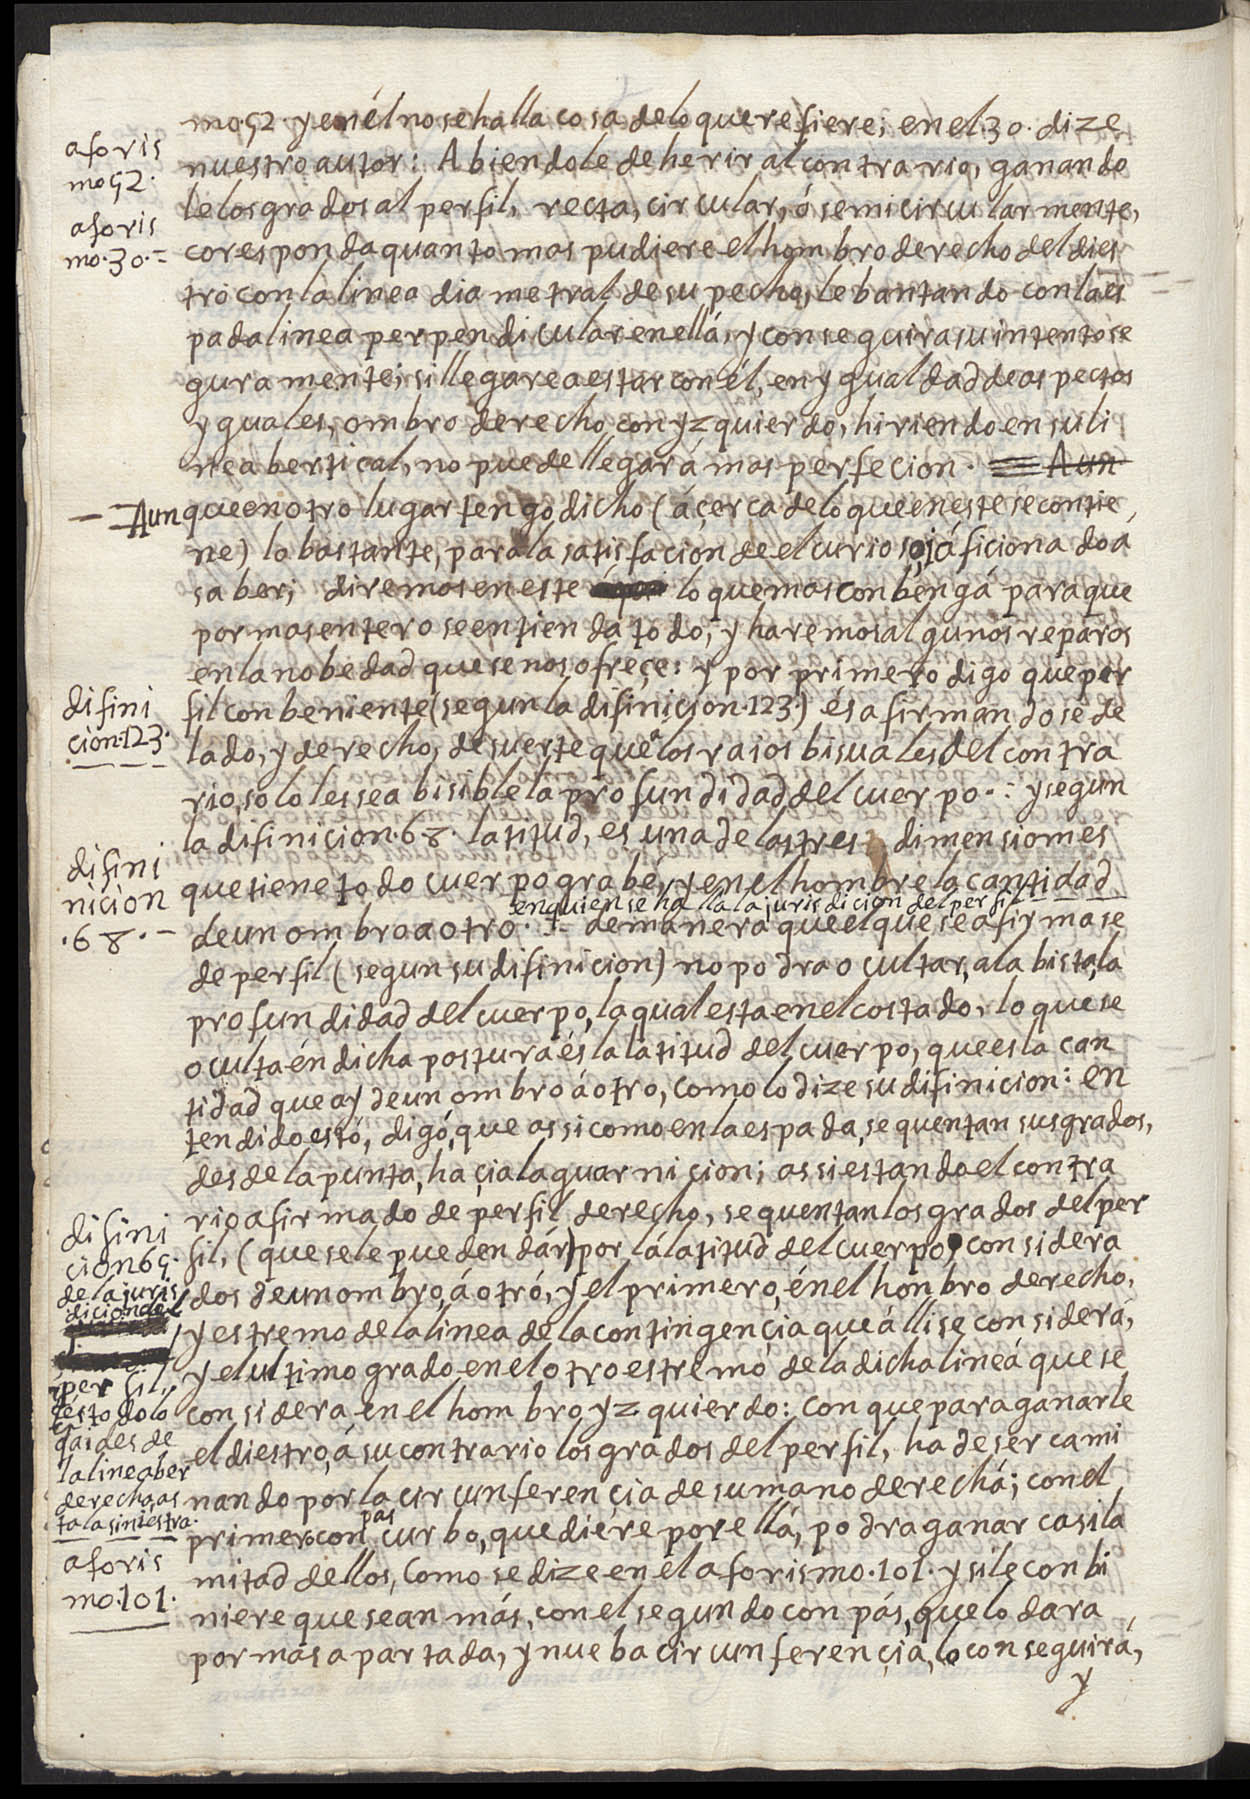 mo.52. y en él no se halla cosa de lo que refiere; en el 30. dize
aforis
mo 52.
nuestro autor: Abiendole de herir al contrario, ganando
le los grados al perfil, recta, circular, ó semicircularmente,
aforis
mo.30.=
corresponda quanto mas pudiere el hombro derecho del dies
tro con la linea diametral de su pecho, lebantando con la es
pada linea perpendicular en ellá, y conseguira su intento se
guramente; si llegare a estar con él, en ygualdad de aspectos
yguales, ombro derecho con yzquierdo, hiriendo en su li
nea bertical, no puede llegar á mas perfecion. Aun
Aunque en otro lugar tengo dicho (áçerca de lo que en este se contie
ne) lo bastante, para la satisfacion de el curioso, i áficionado a
saber; diremos en este lo que mas conbengá para que
por mas entero se entienda todo, y haremos algunos reparos
en la nobedad que se nos ofreçe: y por primero digo que per
difini
cion.123.
fil conbeniente (segun la difinicion.123.) és afirmandose de
lado, y derecho, de suerte que a los raios bisuales del contra
rio, solo les sea bisible la profundidad del cuerpo.: y segun
la difinicion.68. latitud, es una de las tres dimensiones
difini
nicion
.68.-
que tiene todo cuerpo grabe, y en el hombre la cantidad
en quien se halla la jurisdicion del perfil
de un ombro a otro. demanera que el que se afirma se
de perfil (segun su difinicion) no podra ocultar, a la bista, la
profundidad del cuerpo, la qual esta en el costado, lo que se
oculta én dicha postura és la latitud del cuerpo, que es la can
tidad que ay de un ombro á otro, como lo dize su difinicion: en
tendido estó, digó, que assi como en la espada, se quentan sus grados,
desde la punta, haçia la guarniçion; assi estando el contra
rio afirmado de perfil derecho, se quentan los grados del per
difini
cion 69.
de la juris
dicion del
perfil,
q es todo lo
q ai des de
la linea ber
derecha, as
ta la siniestra.
fil, (que se le pueden dár) por lá latitud del cuerpo, considera
dos de un ombro, á otró, y el primero, én el honbro derecho,
y estremo de la linea de la contingençia que álli se considerá,
y el ultimo grado en el otro estremo de la dicha lineá que se
considera en el hombro yzquierdo: con que para ganarle
el diestro, á su contrario los grados del perfil, ha de ser cami
nando por la circunferençia de su mano derechá; con el
primer conpas curbo, que diére por ellá, podra ganar casi la
aforis
mo.101.
mitad dellos, como se dize en él aforismo.101. y si le conbi
niere que sean más, con el segundo conpás, que lo dara
por más apartada, y nueba circunferençia, lo conseguirá,
y